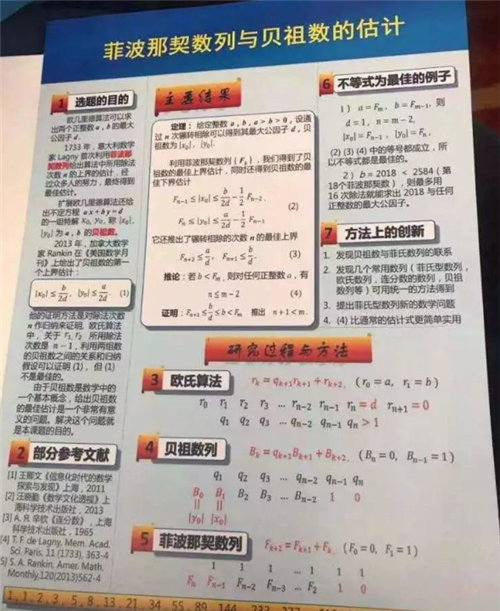 菲波那契数列与贝祖数的估计
1 选题的目的
欧几里德算法可以求
出两个正整数 a, b 的最大
公因子 d。
1733 年，意大利数学
家 Lagny 首次利用菲波那
契数列给出算法中所用除法
次数 n 的上界的估计，经
过众多人的努力，最终得到
最佳估计。
扩展欧几里德算法还给
出不定方程 ax+by=d
的一组特解 x₀, y₀，称 |x₀|,
|y₀| 为 a, b 的贝祖数。
2013 年，加拿大数学
家 Rankin 在《美国数学月
刊》上给出了贝祖数的第一
个上界估计：
|x₀| ≤ b/2d, |y₀| ≤ a/2d (1)
他的证明方法是对除法次数
n 作归纳来证明，欧氏算法
中，关于 r₁, r₂ 所用除法
次数是 n − 1，利用两组数
的贝祖数之间的关系和归纳
假设可以证明 (1)，但 (1)
不是最佳的。
由于贝祖数是数学中的
一个基本概念，给出贝祖数
的最佳估计是一个非常有意
义的问题。解决这个问题就
是本课题的目的。
2 部分参考文献
[1] 王鄂文《信息化时代的数学
探索与发现》上海，2011
[2] 汪晓勤《数学文化透视》上
海科学技术出版，2013
[3] А. Я. 辛钦《连分数》，上海
科学技术出版，1965
[4] T. F. de Lagny, Mem. Acad.
Sci. Paris, 11 (1733), 363-4
[5] S. A. Rankin, Amer. Math.
Monthly,120(2013)562-4
主要结果
定理：给定整数 a, b, a > b > 0，设通
过 n 次辗转相除可以得到其最大公因子 d，贝
祖数为 |x₀|, |y₀|。
利用菲波那契数列 {Fₖ}，我们得到了贝
祖数的最佳上界估计，同时还得到贝祖数的最
佳下界估计
Fₙ₋₁ ≤ |x₀| ≤ b/2d − 1/2 Fₙ₋₂,
(2)
Fₙ ≤ |y₀| ≤ a/2d − 1/2 Fₙ₋₁.
它还推出了辗转相除的次数 n 的最佳上界
Fₙ₊₂ ≤ a/d, Fₙ₊₁ ≤ b/d. (3)
推论：若 b < Fₘ，则对任何正整数 a，有
n ≤ m − 2 (4)
证明：Fₙ₊₁ ≤ b/d ≤ b < Fₘ 推出 n + 1 < m.
研究过程与方法
3 欧氏算法 rₖ = qₖ₊₁rₖ₊₁ + rₖ₊₂, (r₀ = a, r₁ = b)
r₀ r₁ r₂ r₃ … rₙ₋₂ rₙ₋₁ rₙ = d rₙ₊₁ = 0
q₁ q₂ q₃ … qₙ₋₂ qₙ₋₁ qₙ > 1
4 贝祖数列 Bₖ = qₖ₊₁Bₖ₊₁ + Bₖ₊₂, (Bₙ = 0, Bₙ₋₁ = 1)
q₁ q₂ q₃ … qₙ₋₂ qₙ₋₁ qₙ
B₀ B₁ B₂ B₃ … Bₙ₋₂ 1 0
|| ||
|y₀| |x₀|
5 菲波那契数列 Fₖ₊₂ = Fₖ₊₁ + Fₖ, (F₀ = 0, F₁ = 1)
1 1 1 … 1 1 1
Fₙ Fₙ₋₁ Fₙ₋₂ Fₙ₋₃ … F₂ 1 0
6 不等式为最佳的例子
1) a = Fₘ, b = Fₘ₋₁, 则
d = 1, n = m − 2,
|x₀| = Fₙ₋₁, |y₀| = Fₙ.
(2) (3) (4) 中的等号都成立，所
以不等式都是最佳的。
2) b = 2018 < 2584 (第
18个菲波那契数)，则最多用
16 次除法就能求出 2018 与任何
正整数的最大公因子。
7 方法上的创新
1. 发现贝祖数与菲氏数列的联系
2. 发现几个常用数列（菲氏型数列，
欧氏数列，连分数的数列，贝祖
数列等）可用统一的方法得到
3. 提出菲氏型数列新的数学问题
4. (4) 比通常的估计式更简单实用
1, 1, 2, 3, 5, 8, 13, 21, 34, 55, 89, 144, 233, 377